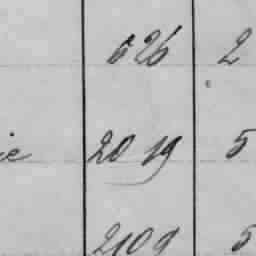 626 2
ie 2019 5
2109 5